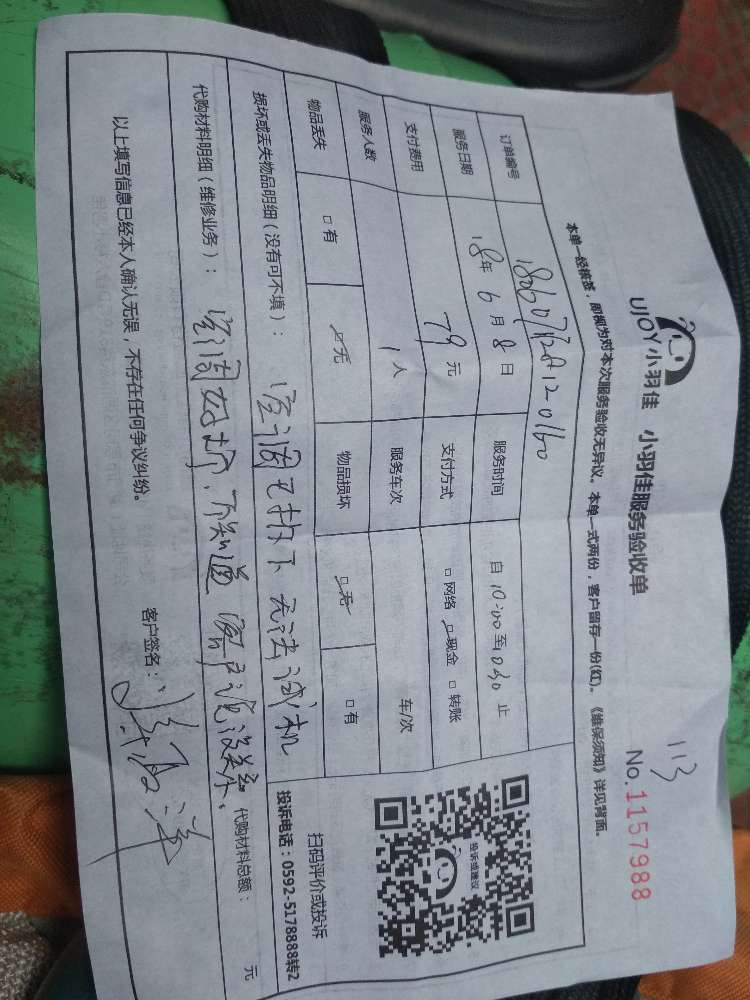 113
UJOY小羽佳 小羽佳服务验收单 No.1157988
本单一经核签，即视为对本次服务验收无异议。本单一式两份，客户留存一份(红)。《维保须知》详见背面。
订单编号
服务日期 18年 6月 8日 服务时间 自 10:00 至 1030 止
支付费用 79 元 支付方式 □网络 □现金 □转账
服务人数 1 人 服务车次 车/次
物品丢失 □有 □无 物品损坏 □无 □有
损坏或丢失物品明细（没有可不填）： 空调已拆下无法试机
代购材料明细（维修业务）： 空调好坏，不知道 客户说没关系。 代购材料总额： 元
以上填写信息已经本人确认无误，不存在任何争议纠纷。 客户签名：
投诉或建议
扫码评价或投诉
投诉电话：0592-5178888转2